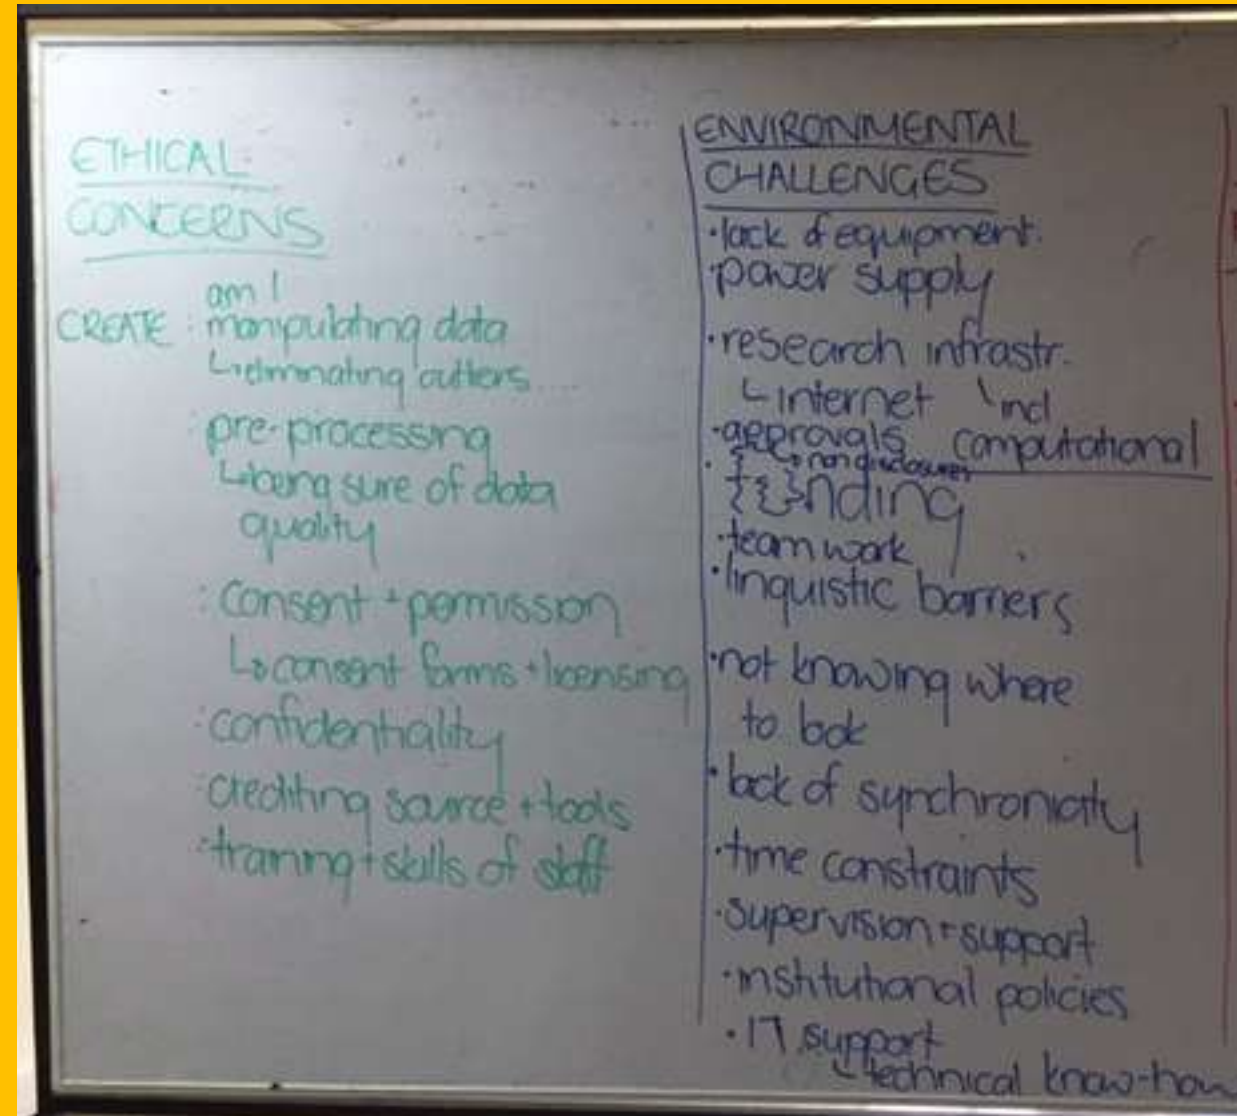 ETHICAL
CONCERNS
am I
CREATE : manipulating data
↳eliminating outliers
: pre-processing
↳being sure of data
quality
: consent + permission
↳consent forms + licensing
: confidentiality
: crediting source + tools
: training + skills of staff
ENVIRONMENTAL
CHALLENGES
·lack of equipment.
·power supply
·research infrastr.
↳internet incl
·approvals computational
↳non disclosures
·nding
·team work
·linguistic barriers
·not knowing where
to look
·lack of synchronicity
·time constraints
·supervision + support
·institutional policies
·IT support
↳technical know-how